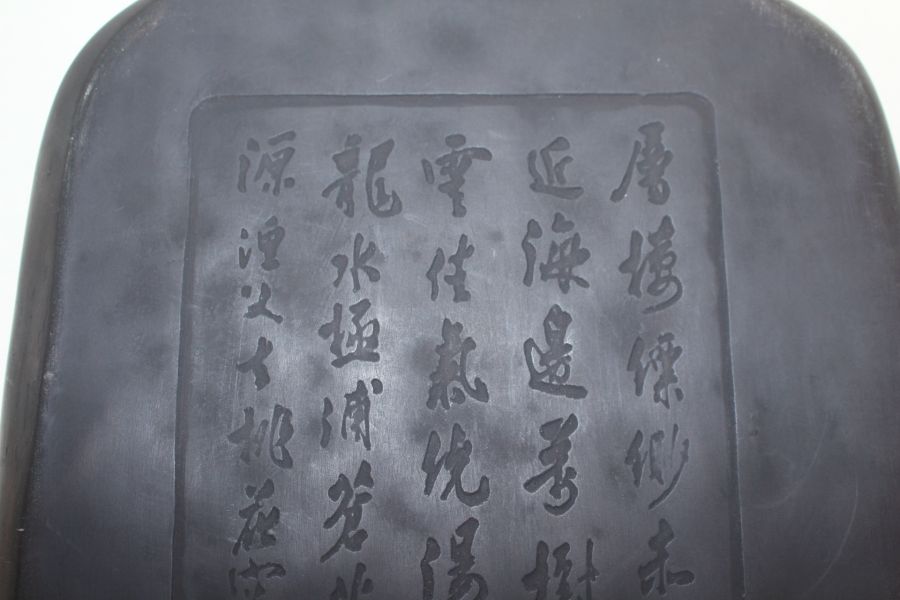 層樓縹緲未
近海邊萬樹
雲佳氣繞湯
龍水極浦蒼
源漁父去桃花